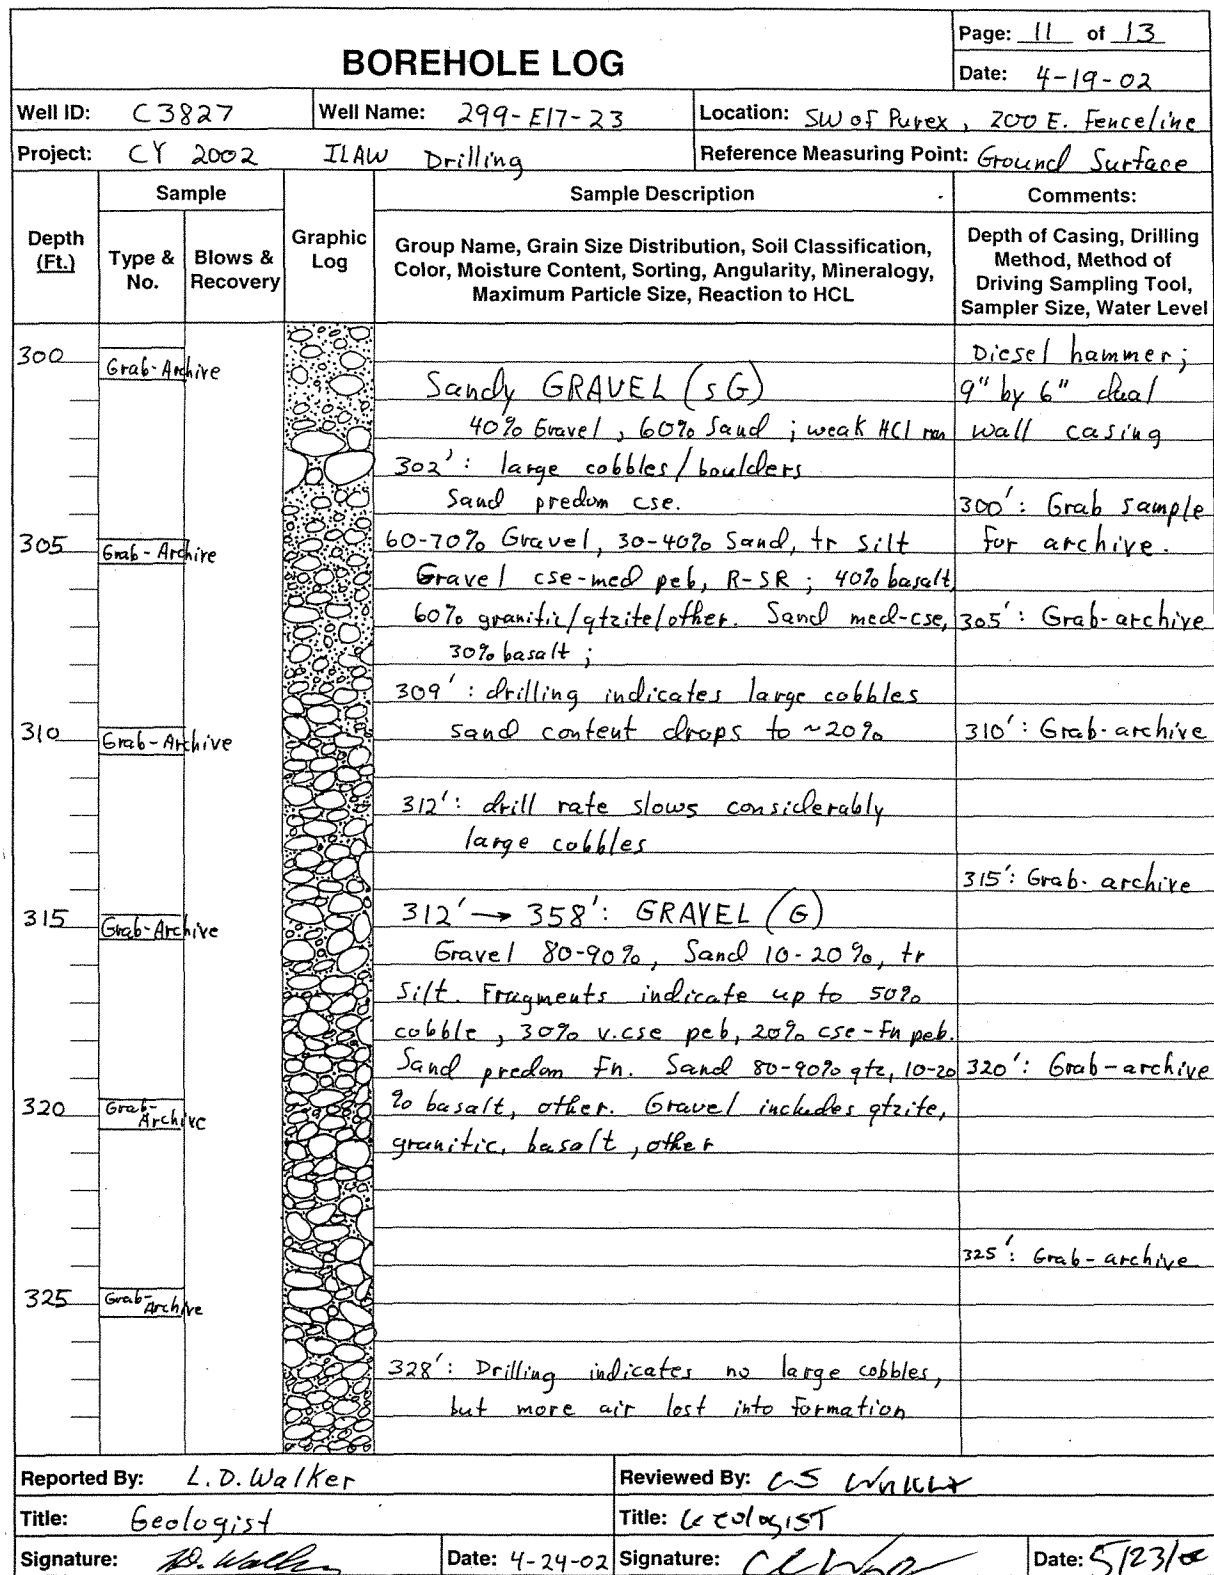 BOREHOLE LOG
Page: 11 of 13
Date: 4-19-02
Well ID: C3827 Well Name: 299-E17-23 Location: SW of Purex, 200 E. Fenceline
Project: CY 2002 ILAW Drilling Reference Measuring Point: Ground Surface
Depth (Ft.)
Sample
Type & No.
Blows & Recovery
Graphic Log
Sample Description
Group Name, Grain Size Distribution, Soil Classification,
Color, Moisture Content, Sorting, Angularity, Mineralogy,
Maximum Particle Size, Reaction to HCL
Comments:
Depth of Casing, Drilling
Method, Method of
Driving Sampling Tool,
Sampler Size, Water Level
300 Grab-Archive
305 Grab-Archive
310 Grab-Archive
315 Grab-Archive
320 Grab-Archive
325 Grab-Archive
Sandy GRAVEL (sG)
40% Gravel, 60% Sand; weak HCl rxn
302': large cobbles/boulders
Sand predom cse.
60-70% Gravel, 30-40% Sand, tr silt
Gravel cse-med peb, R-SR; 40% basalt,
60% granitic/qtzite/other. Sand med-cse,
30% basalt;
309': drilling indicates large cobbles
sand content drops to ~20%
312': drill rate slows considerably
large cobbles
312' → 358': GRAVEL (G)
Gravel 80-90%, Sand 10-20%, tr
silt. Fragments indicate up to 50%
cobble, 30% v.cse peb, 20% cse-fn peb.
Sand predom fn. Sand 80-90% qtz, 10-20
% basalt, other. Gravel includes qtzite,
granitic, basalt, other
328': Drilling indicates no large cobbles,
but more air lost into formation
Diesel hammer;
9" by 6" dual
wall casing
300': Grab sample
for archive.
305': Grab-archive
310': Grab-archive
315': Grab-archive
320': Grab-archive
325': Grab-archive
Reported By: L.D. Walker Reviewed By:
Title: Geologist Title: Geologist
Signature: L.D. Walker Date: 4-24-02 Signature: Date: 5/23/02